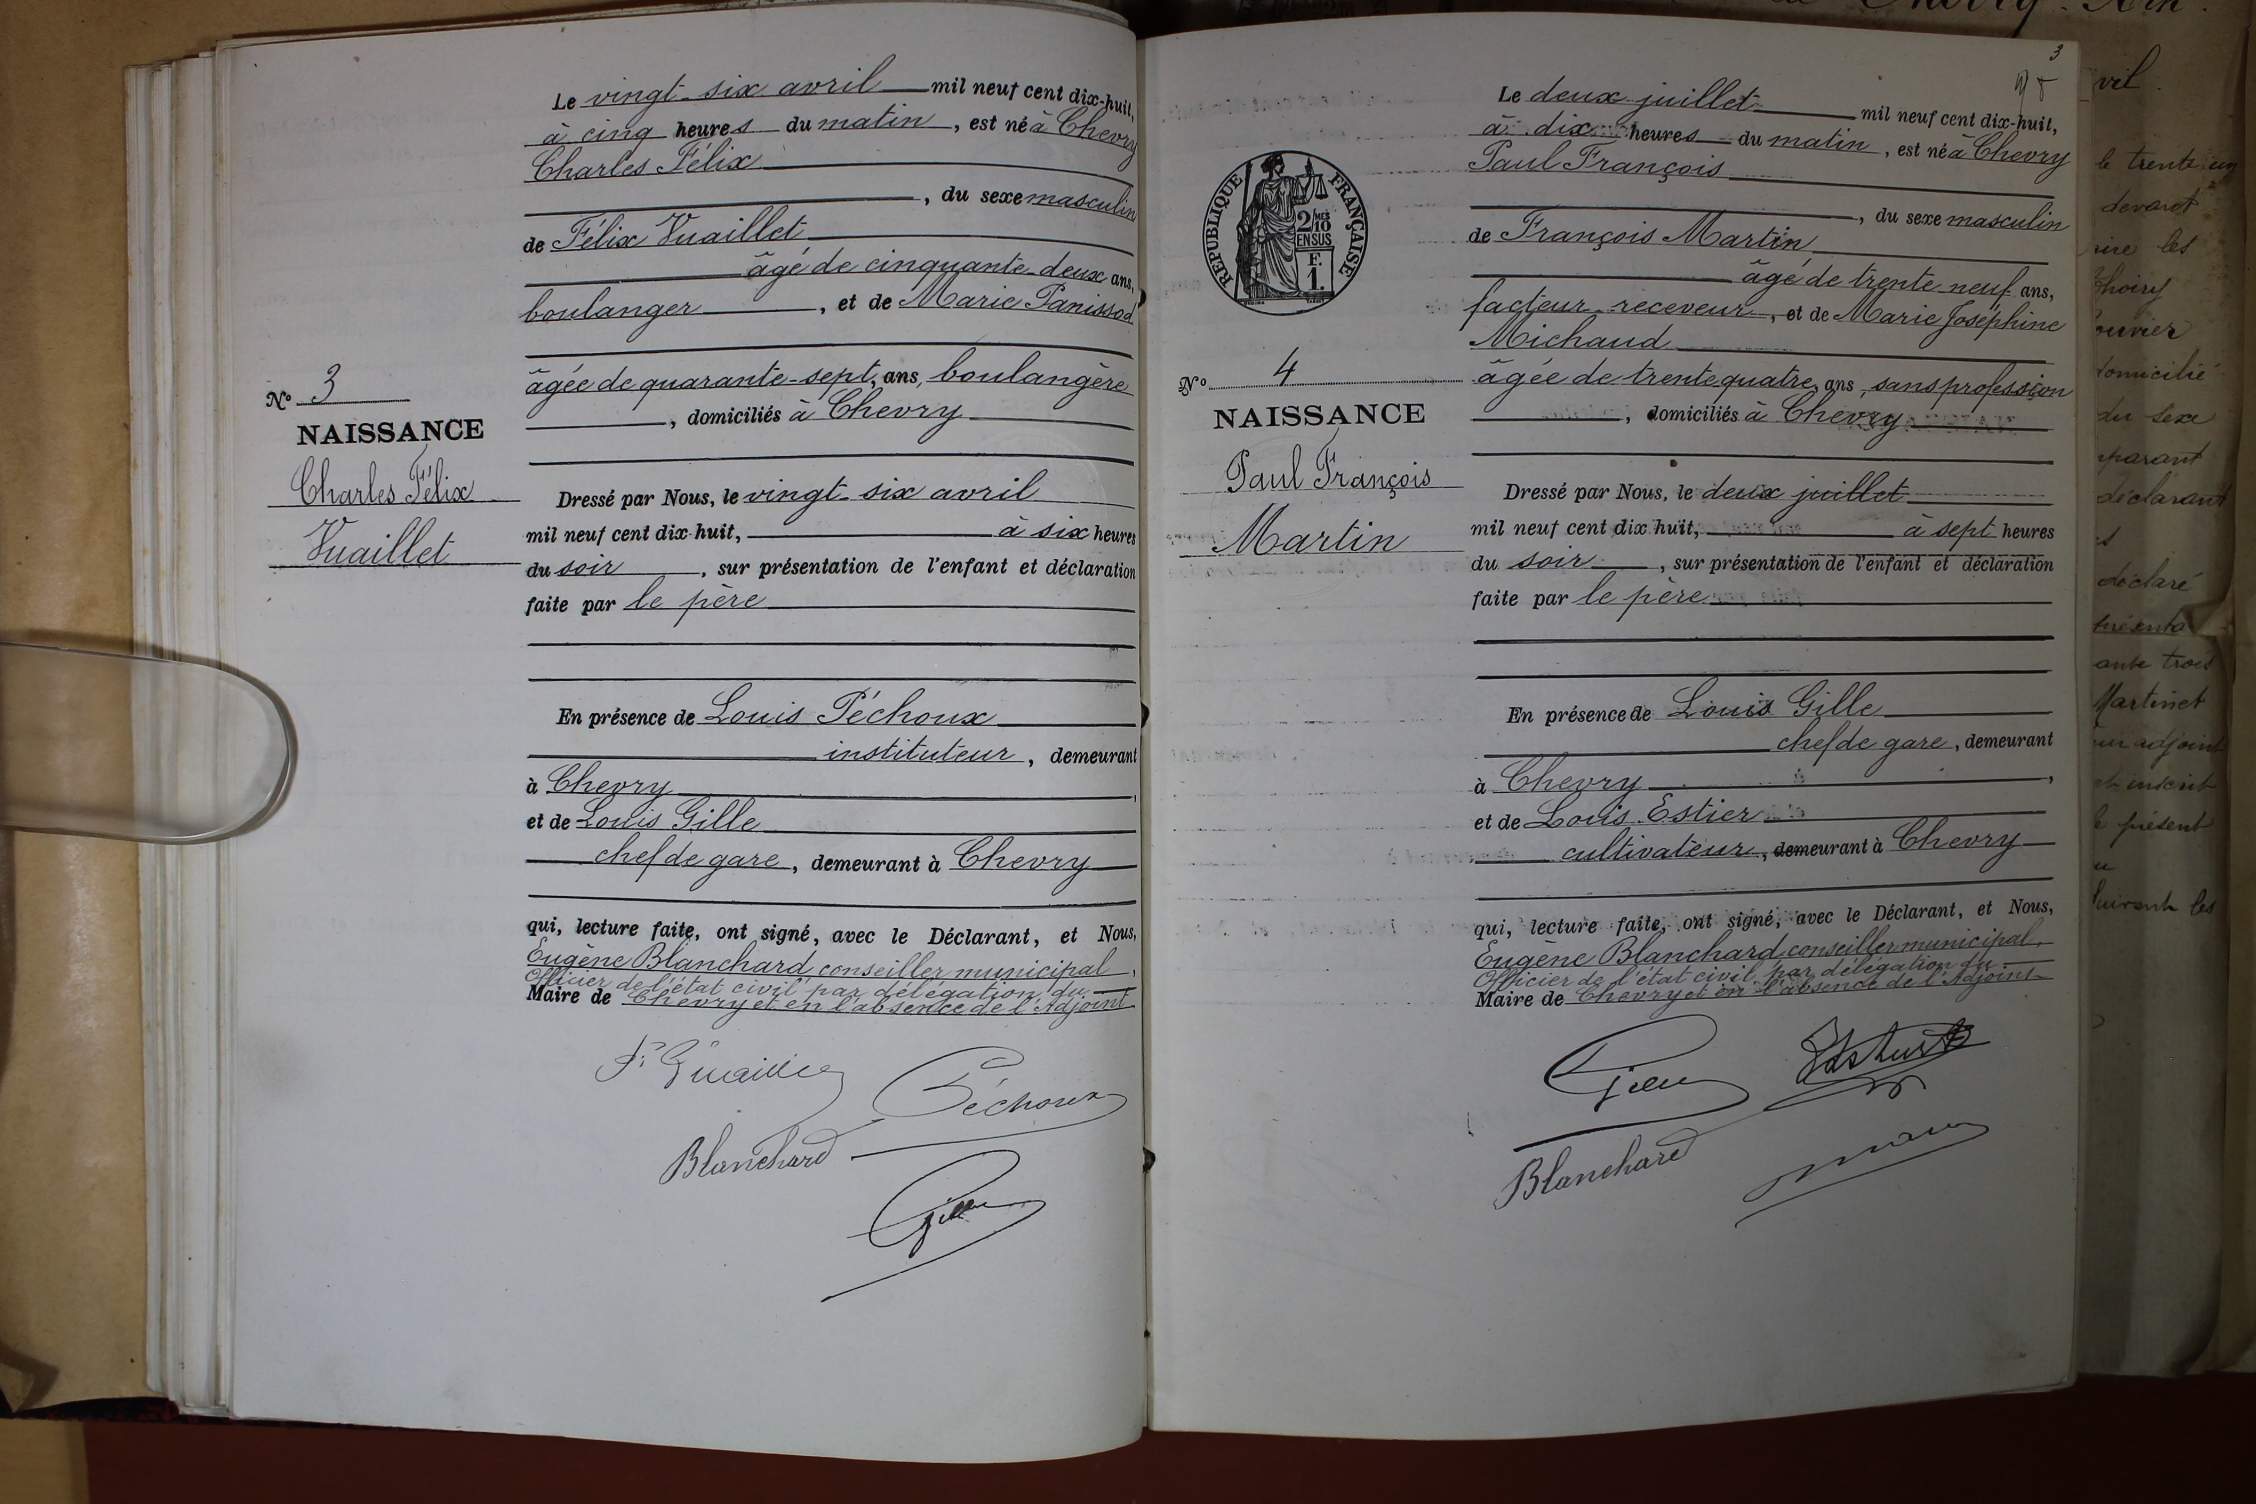 Nº 3
NAISSANCE
Charles Félix
Vuaillet
Le vingt-six avril mil neuf cent dix-huit,
à cinq heures du matin, est né à Chevry
Charles Félix
, du sexe masculin
de Félix Vuaillet
âgé de cinquante-deux ans,
boulanger, et de Marie Panissod
âgée de quarante-sept, ans, boulangère
, domiciliés à Chevry
Dressé par Nous, le vingt-six avril
mil neuf cent dix-huit, à six heures
du soir, sur présentation de l'enfant et déclaration
faite par le père
En présence de Louis Péchoux
instituteur, demeurant
à Chevry,
et de Louis Gille
chef de gare, demeurant à Chevry
qui, lecture faite, ont signé, avec le Déclarant, et Nous,
Eugène Blanchard, conseiller municipal,
Officier de l'état civil par délégation du
Maire de Chevry et en l'absence de l'Adjoint
Péchoux
Blanchard
3
RÉPUBLIQUE FRANÇAISE
2/10 MES
EN SUS
F.
1.
Nº 4
NAISSANCE
Paul François
Martin
Le deux juillet mil neuf cent dix-huit,
à dix heures du matin, est né à Chevry
Paul François
, du sexe masculin
de François Martin
âgé de trente-neuf ans,
facteur-receveur, et de Marie Joséphine
Michaud
âgée de trente quatre, ans, sans profession
, domiciliés à Chevry
Dressé par Nous, le deux juillet
mil neuf cent dix huit, à sept heures
du soir, sur présentation de l'enfant et déclaration
faite par le père
En présence de Louis Gille
chef de gare, demeurant
à Chevry,
et de Louis Estier
cultivateur, demeurant à Chevry
qui, lecture faite, ont signé, avec le Déclarant, et Nous,
Eugène Blanchard, conseiller municipal,
Officier de l'état civil par délégation du
Maire de Chevry et en l'absence de l'Adjoint
Blanchard
le trente un
devant
les
Thoiry
domicilié
du sexe
déclarant
déclaré
trois
Martinet
adjoint
inscrit
présent
suivant les